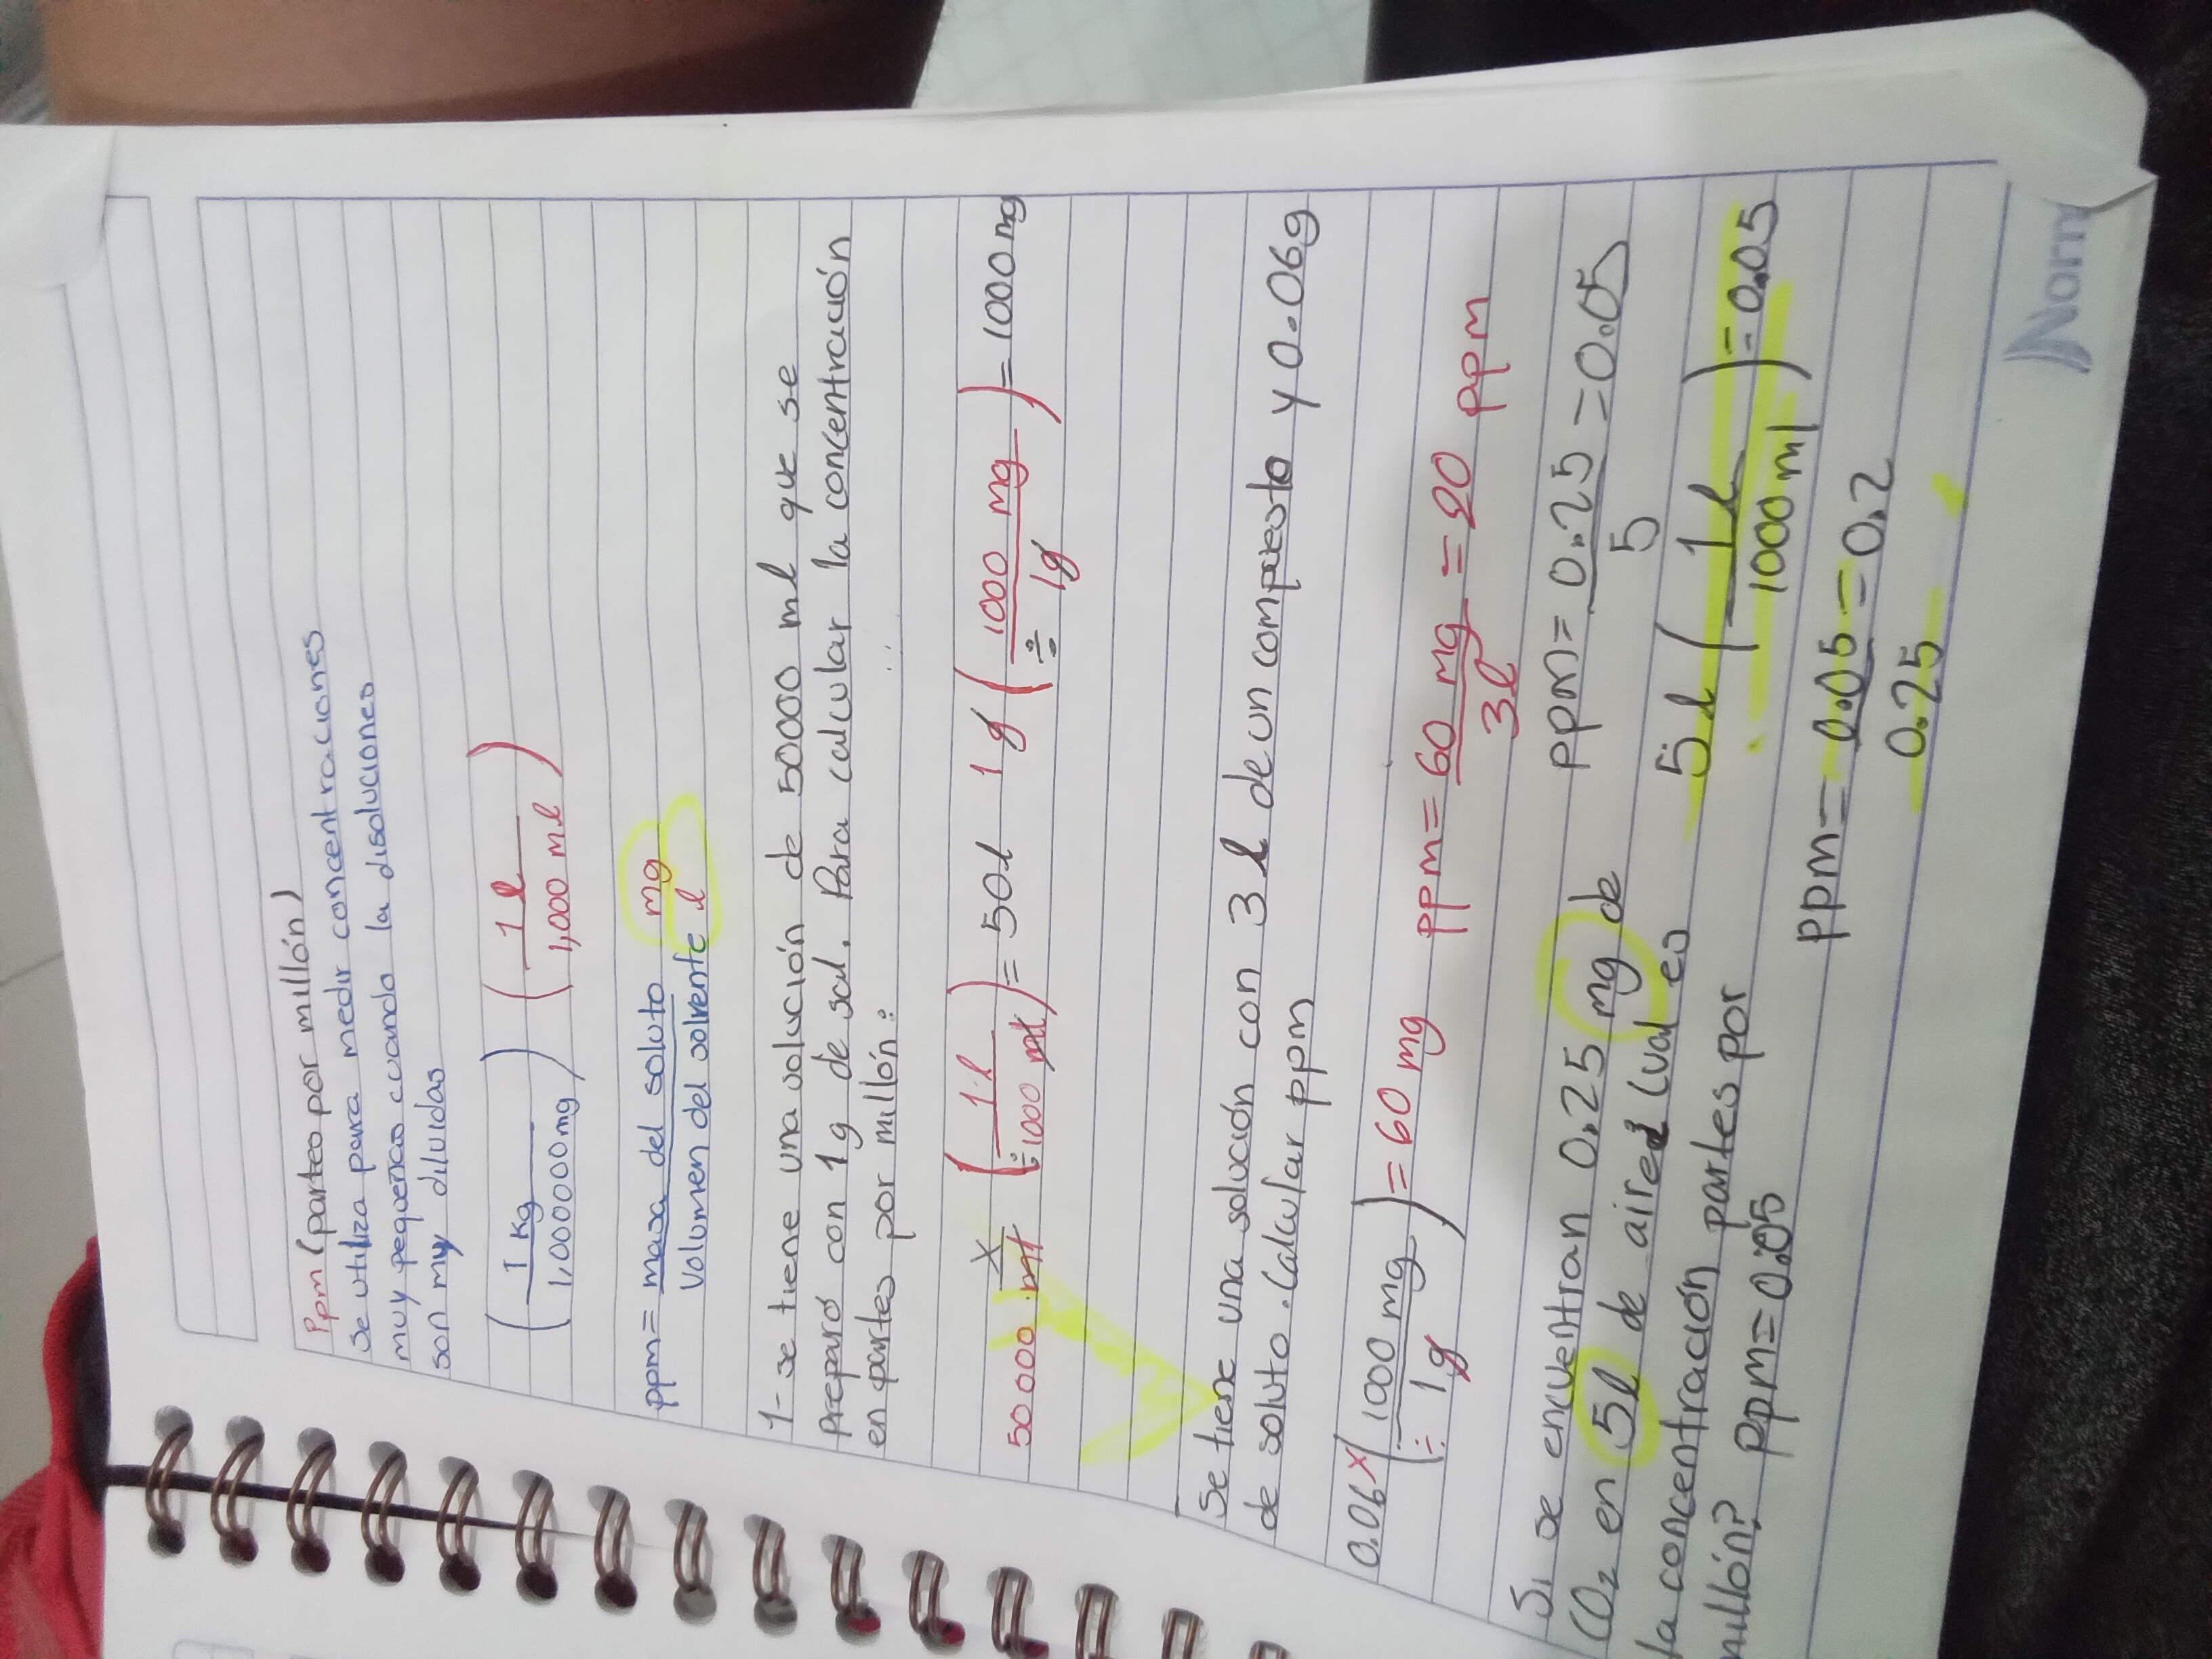 Ppm (partes por millón)
Se utiliza para medir concentraciones
muy pequeñas cuando la disoluciones
son muy diluidas
( 1 kg / 1,000000 mg ) ( 1 l / 1,000 ml )
ppm = masa del soluto / Volumen del solvente mg / l
1- se tiene una solución de 50000 ml que se
preparó con 1g de sal. Para calcular la concentración
en partes por millón:
50 000 ml x ( 1 l / ÷ 1000 ml ) = 50 l 1 g ( 1000 mg / ÷ 1g ) = 1000 mg
Se tiene una solución con 3 l de un compuesto y 0.06g
de soluto. Calcular ppm
0.06 x ( 1000 mg / ÷ 1g ) = 60 mg ppm = 60 mg / 3 l = 20 ppm
Si se encuentran 0.25 mg de
CO2 en 5l de aire ¿ Cual es
la concentración partes por
millón? ppm = 0.05
ppm = 0.25 / 5 = 0.05
5 l ( 1 l / 1000 ml ) = 0.05
ppm = 0.05 / 0.25 = 0.2
Norm